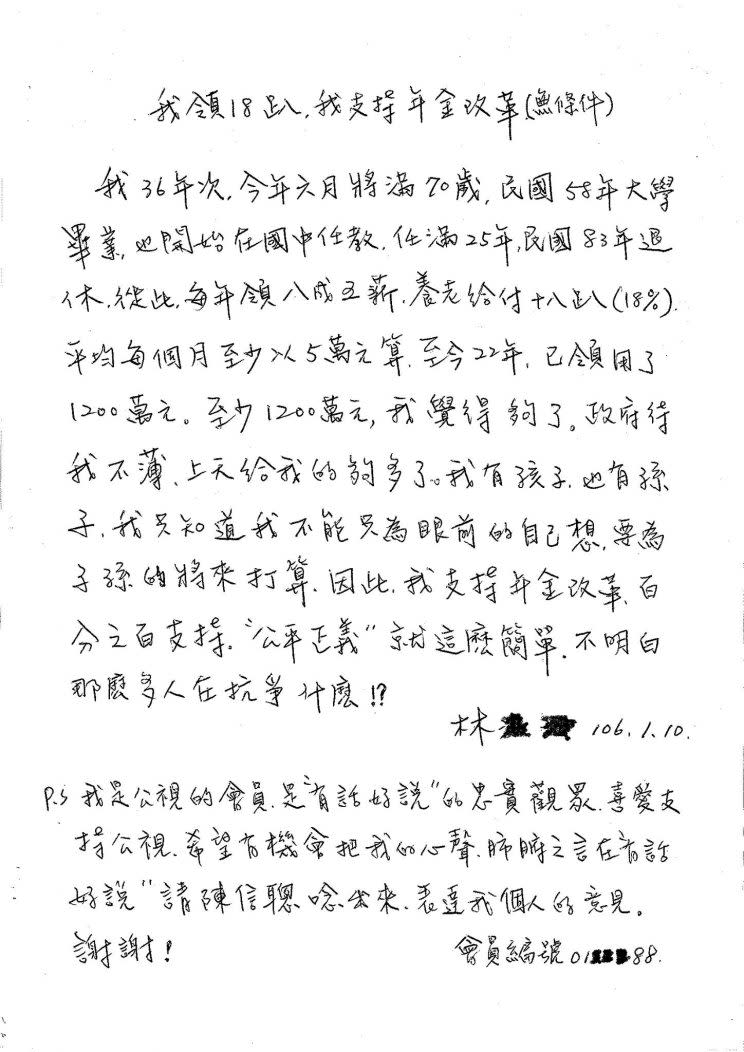 我領18趴,我支持年金改革(無條件)
我36年次,今年六月將滿70歲,民國58年大學
畢業,也開始在國中任教,任滿25年,民國83年退
休,從此,每年領八成五薪,養老給付十八趴(18%).
平均每個月至少以5萬元算,至今22年,已領用了
1200萬元。至少1200萬元,我覺得夠了。政府待
我不薄,上天給我的夠多了。我有孩子,也有孫
子,我只知道我不能只為眼前的自己想,要為
子孫的將來打算,因此,我支持年金改革,百
分之百支持。“公平正義”就這麼簡單,不明白
那麼多人在抗爭什麼!?
林 106.1.10.
P.S 我是公視的會員,是“有話好說”的忠實觀眾,喜愛支
持公視,希望有機會把我的心聲,肺腑之言在有話
好說”請陳信聰唸出來,表達我個人的意見。
謝謝!
會員編號01 88.